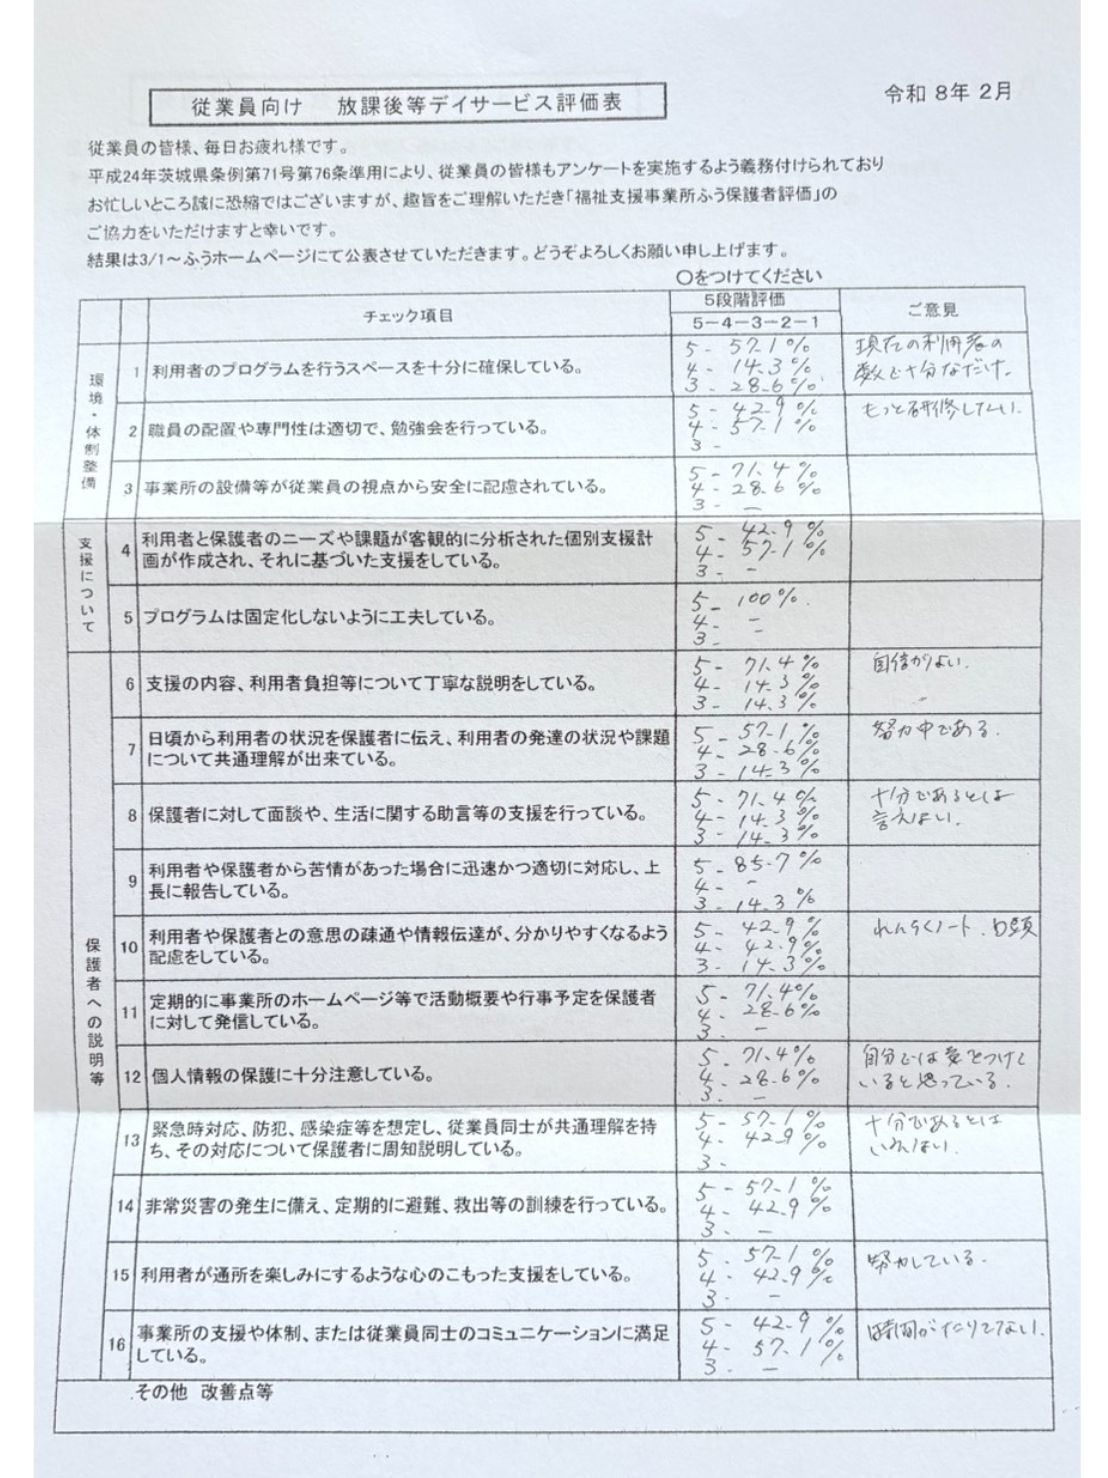 令和 8年 2月
従業員向け　放課後等デイサービス評価表
従業員の皆様、毎日お疲れ様です。
平成24年茨城県条例第71号第76条準用により、従業員の皆様もアンケートを実施するよう義務付けられており
お忙しいところ誠に恐縮ではございますが、趣旨をご理解いただき「福祉支援事業所ふう保護者評価」の
ご協力をいただけますと幸いです。
結果は3/1～ふうホームページにて公表させていただきます。どうぞよろしくお願い申し上げます。
〇をつけてください
チェック項目
5段階評価
5－4－3－2－1
ご意見
環境・体制整備
1 利用者のプログラムを行うスペースを十分に確保している。
5 - 57.1%
4 - 14.3%
3 - 28.6%
現在の利用者の
数で十分なだけ。
2 職員の配置や専門性は適切で、勉強会を行っている。
5 - 42.9%
4 - 57.1%
3 -
もっと研修したい。
3 事業所の設備等が従業員の視点から安全に配慮されている。
5 - 71.4%
4 - 28.6%
3 - －
支援について
4 利用者と保護者のニーズや課題が客観的に分析された個別支援計
画が作成され、それに基づいた支援をしている。
5 - 42.9%
4 - 57.1%
3 - －
5 プログラムは固定化しないように工夫している。
5 - 100%
4 - －
3 - －
保護者への説明等
6 支援の内容、利用者負担等について丁寧な説明をしている。
5 - 71.4%
4 - 14.3%
3 - 14.3%
自信がない。
7 日頃から利用者の状況を保護者に伝え、利用者の発達の状況や課題
について共通理解が出来ている。
5 - 57.1%
4 - 28.6%
3 - 14.3%
努力中である。
8 保護者に対して面談や、生活に関する助言等の支援を行っている。
5 - 71.4%
4 - 14.3%
3 - 14.3%
十分であるとは
言えない。
9 利用者や保護者から苦情があった場合に迅速かつ適切に対応し、上
長に報告している。
5 - 85.7%
4 - －
3 - 14.3%
10 利用者や保護者との意思の疎通や情報伝達が、分かりやすくなるよう
配慮をしている。
5 - 42.9%
4 - 42.9%
3 - 14.3%
れんらくノート、口頭
11 定期的に事業所のホームページ等で活動概要や行事予定を保護者
に対して発信している。
5 - 71.4%
4 - 28.6%
3 - －
12 個人情報の保護に十分注意している。
5 - 71.4%
4 - 28.6%
3 - －
自分では気をつけて
いると思っている。
13 緊急時対応、防犯、感染症等を想定し、従業員同士が共通理解を持
ち、その対応について保護者に周知説明している。
5 - 57.1%
4 - 42.9%
3 -
十分であるとは
いえない。
14 非常災害の発生に備え、定期的に避難、救出等の訓練を行っている。
5 - 57.1%
4 - 42.9%
3 - －
15 利用者が通所を楽しみにするような心のこもった支援をしている。
5 - 57.1%
4 - 42.9%
3 - －
努力している。
16 事業所の支援や体制、または従業員同士のコミュニケーションに満足
している。
5 - 42.9%
4 - 57.1%
3 - －
時間がたりてない。
その他 改善点等